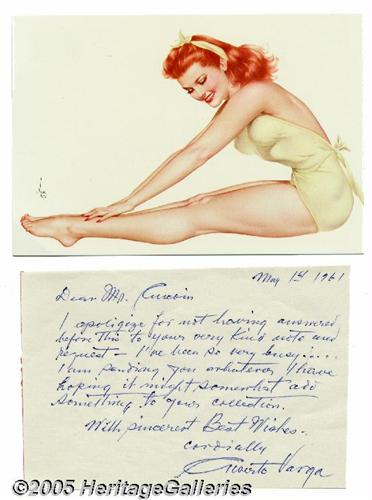 May 1st 1961
Dear Mr.
I apologize for not having answered
before this to your very kind note and
request — I've been so very busy....
I am sending you whatever I have
hoping it might somewhat add
something to your collection.
With sincerest Best Wishes.
cordially
Alberto Varga
©2005 HeritageGalleries